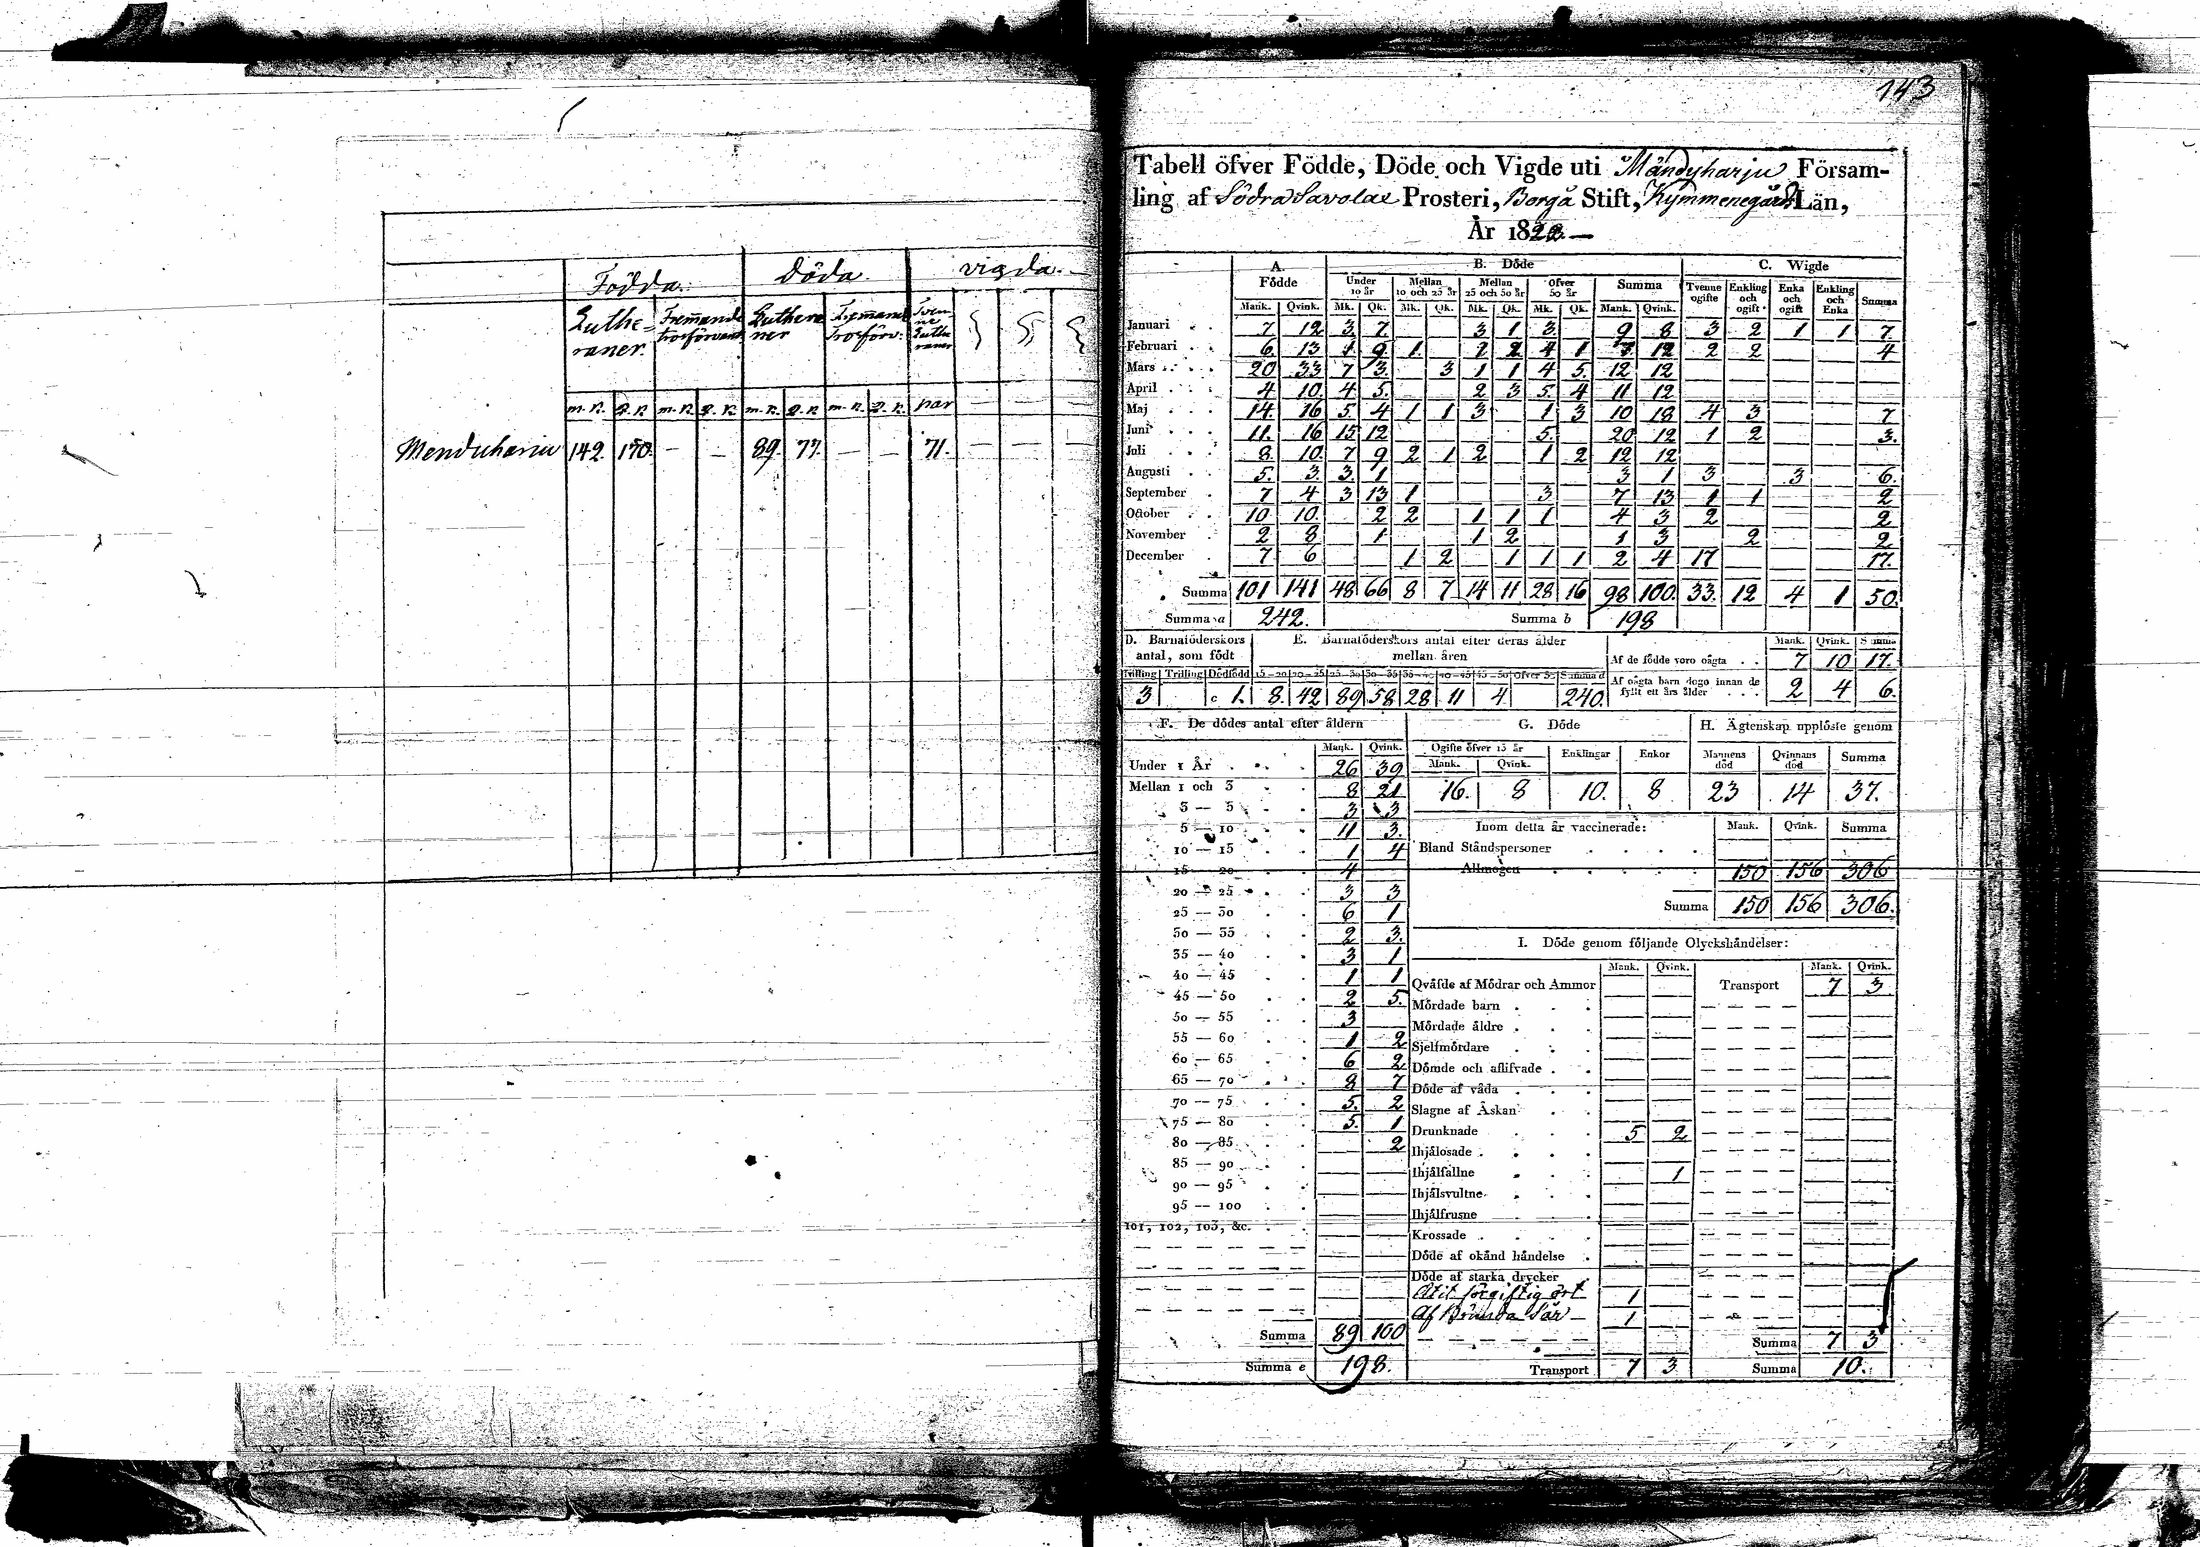 143
Födda. Döda. vigda.
Luthe= Fremande Luthera Fremand Tven
raner. trosförvant ner Trosförv: ne
Luthe
raner
m. k. q. k. m. k. q. k. m. k. q. k. m. k. q. k. par
Menduharju 142. 170. — — 89. 77. — — 71. — — —
Tabell öfver Födde, Döde och Vigde uti Mändyharju Församling
ling af Södra Savolax Prosteri, Borgå Stift, Kymmenegårds Län,
År 1822. —
A. B. Döde C. Wigde
Födde Under 10 år Mellan 10 och 25 år Mellan 25 och 50 år Öfver 50 år Summa Tvenne ogifte Enkling och ogift Enka och ogift Enkling och Enka Summa
Mank. Qvink. Mk. Qk. Mk. Qk. Mk. Qk. Mk. Qk. Mank. Qvink.
Januari 7 12 3 7 3 1 3 9 8 3 2 1 1 7.
Februari 6. 13 1 9. 1. 1 2 4 1 7 12 2 2 4
Mars 20 33 7 3. 3 1 1 4 5. 12 12
April 4 10. 4 5. 2 3 5. 4 11 12
Maj 14. 16 5. 4 1 1 3 1 3 10 18 4 3 7
Juni 11. 16 15 12 5. 20 12 1 2 3.
Juli 8. 10. 7 9 2 1 2 1 2 12 12
Augusti 5. 3. 3. 1 3 1 3 3 6.
September 7 4 3 13 1 3 7 13 1 1 2
October 10 10. 2 2 1 1 1 4 3 2 2
November 2 8 1 1 2 1 3 2 2
December 7 6 1 2 1 1 1 2 4 17 17.
Summa 101 141 48 66 8 7 14 11 28 16 98 100. 33. 12 4 1 50.
Summa a 242. Summa b 198
D. Barnaföderskors antal, som födt
E. Barnaföderskors antal efter deras ålder mellan åren
Tvilling Trilling Dödfödd 15—20 20—25 25—30 30—35 35—40 40—45 45—50 Öfver 50 Summa d
3 c 1. 8. 42 89 58 28 11 4. 240.
Mank. Qvink. Summa
Af de födde voro oägta . . 7 10 17.
Af oägta barn dogo innan de fyllt ett års ålder . . . 2 4 6.
F. De dödes antal efter åldern
Mank. Qvink.
Under 1 År 26 39
Mellan 1 och 3 8 21
3 — 5 3 3
5 — 10 11 3.
10 — 15 1 4
15 — 20 4
20 — 25 3 3
25 — 30 6 1
30 — 35 2 3.
35 — 40 3 1
40 — 45 1 1
45 — 50 2 5.
50 — 55 3
55 — 60 1 2
60 — 65 6 2
65 — 70 8 7
70 — 75 5. 2
75 — 80 5. 1
80 — 85 2
85 — 90
90 — 95
95 — 100
101, 102, 103, &c.
Summa 89 100
Summa e 198.
G. Döde H. Ägtenskap upplöste genom
Ogifte öfver 15 år Enklingar Enkor Mannens död Qvinnans död Summa
Mank. Qvink.
16. 8 10. 8 23 14 37.
Inom detta år vaccinerade: Mank. Qvink. Summa
Bland Ståndspersoner
Allmogen 150 156 306
Summa 150 156 306.
I. Döde genom följande Olyckshändelser:
Mank. Qvink. Mank. Qvink.
Qväfde af Mödrar och Ammor Transport 7 3
Mördade barn
Mördade äldre
Sjelfmördare
Dömde och aflifvade
Döde af våda
Slagne af Åskan
Drunknade 5 2
Ihjälosade
Ihjälfallne 1
Ihjälsvultne
Ihjälfrusne
Krossade
Döde af okänd händelse
Döde af starka drycker
Ätit förgiftig ört 1
Af Brända Sår 1
Summa 7 3
Transport 7 3 Summa 10.